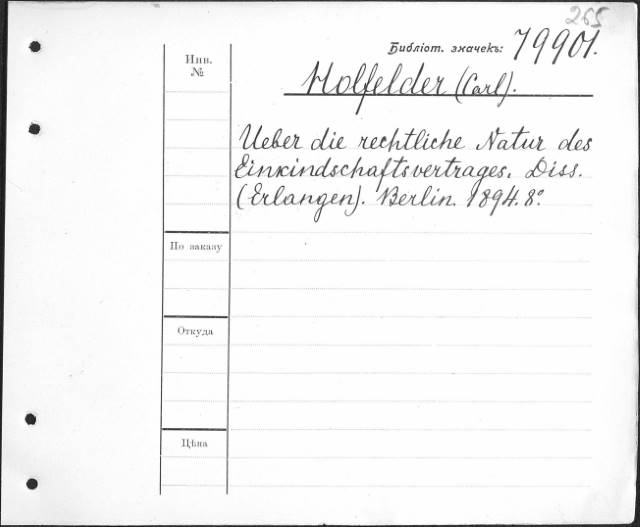 265
Библіот. значекъ: 79901.
Инв.
№
Holfelder (Carl).
Ueber die rechtliche Natur des
Einkindschaftsvertrages. Diss.
(Erlangen). Berlin. 1894. 8°.
По заказу
Откуда
Цѣна